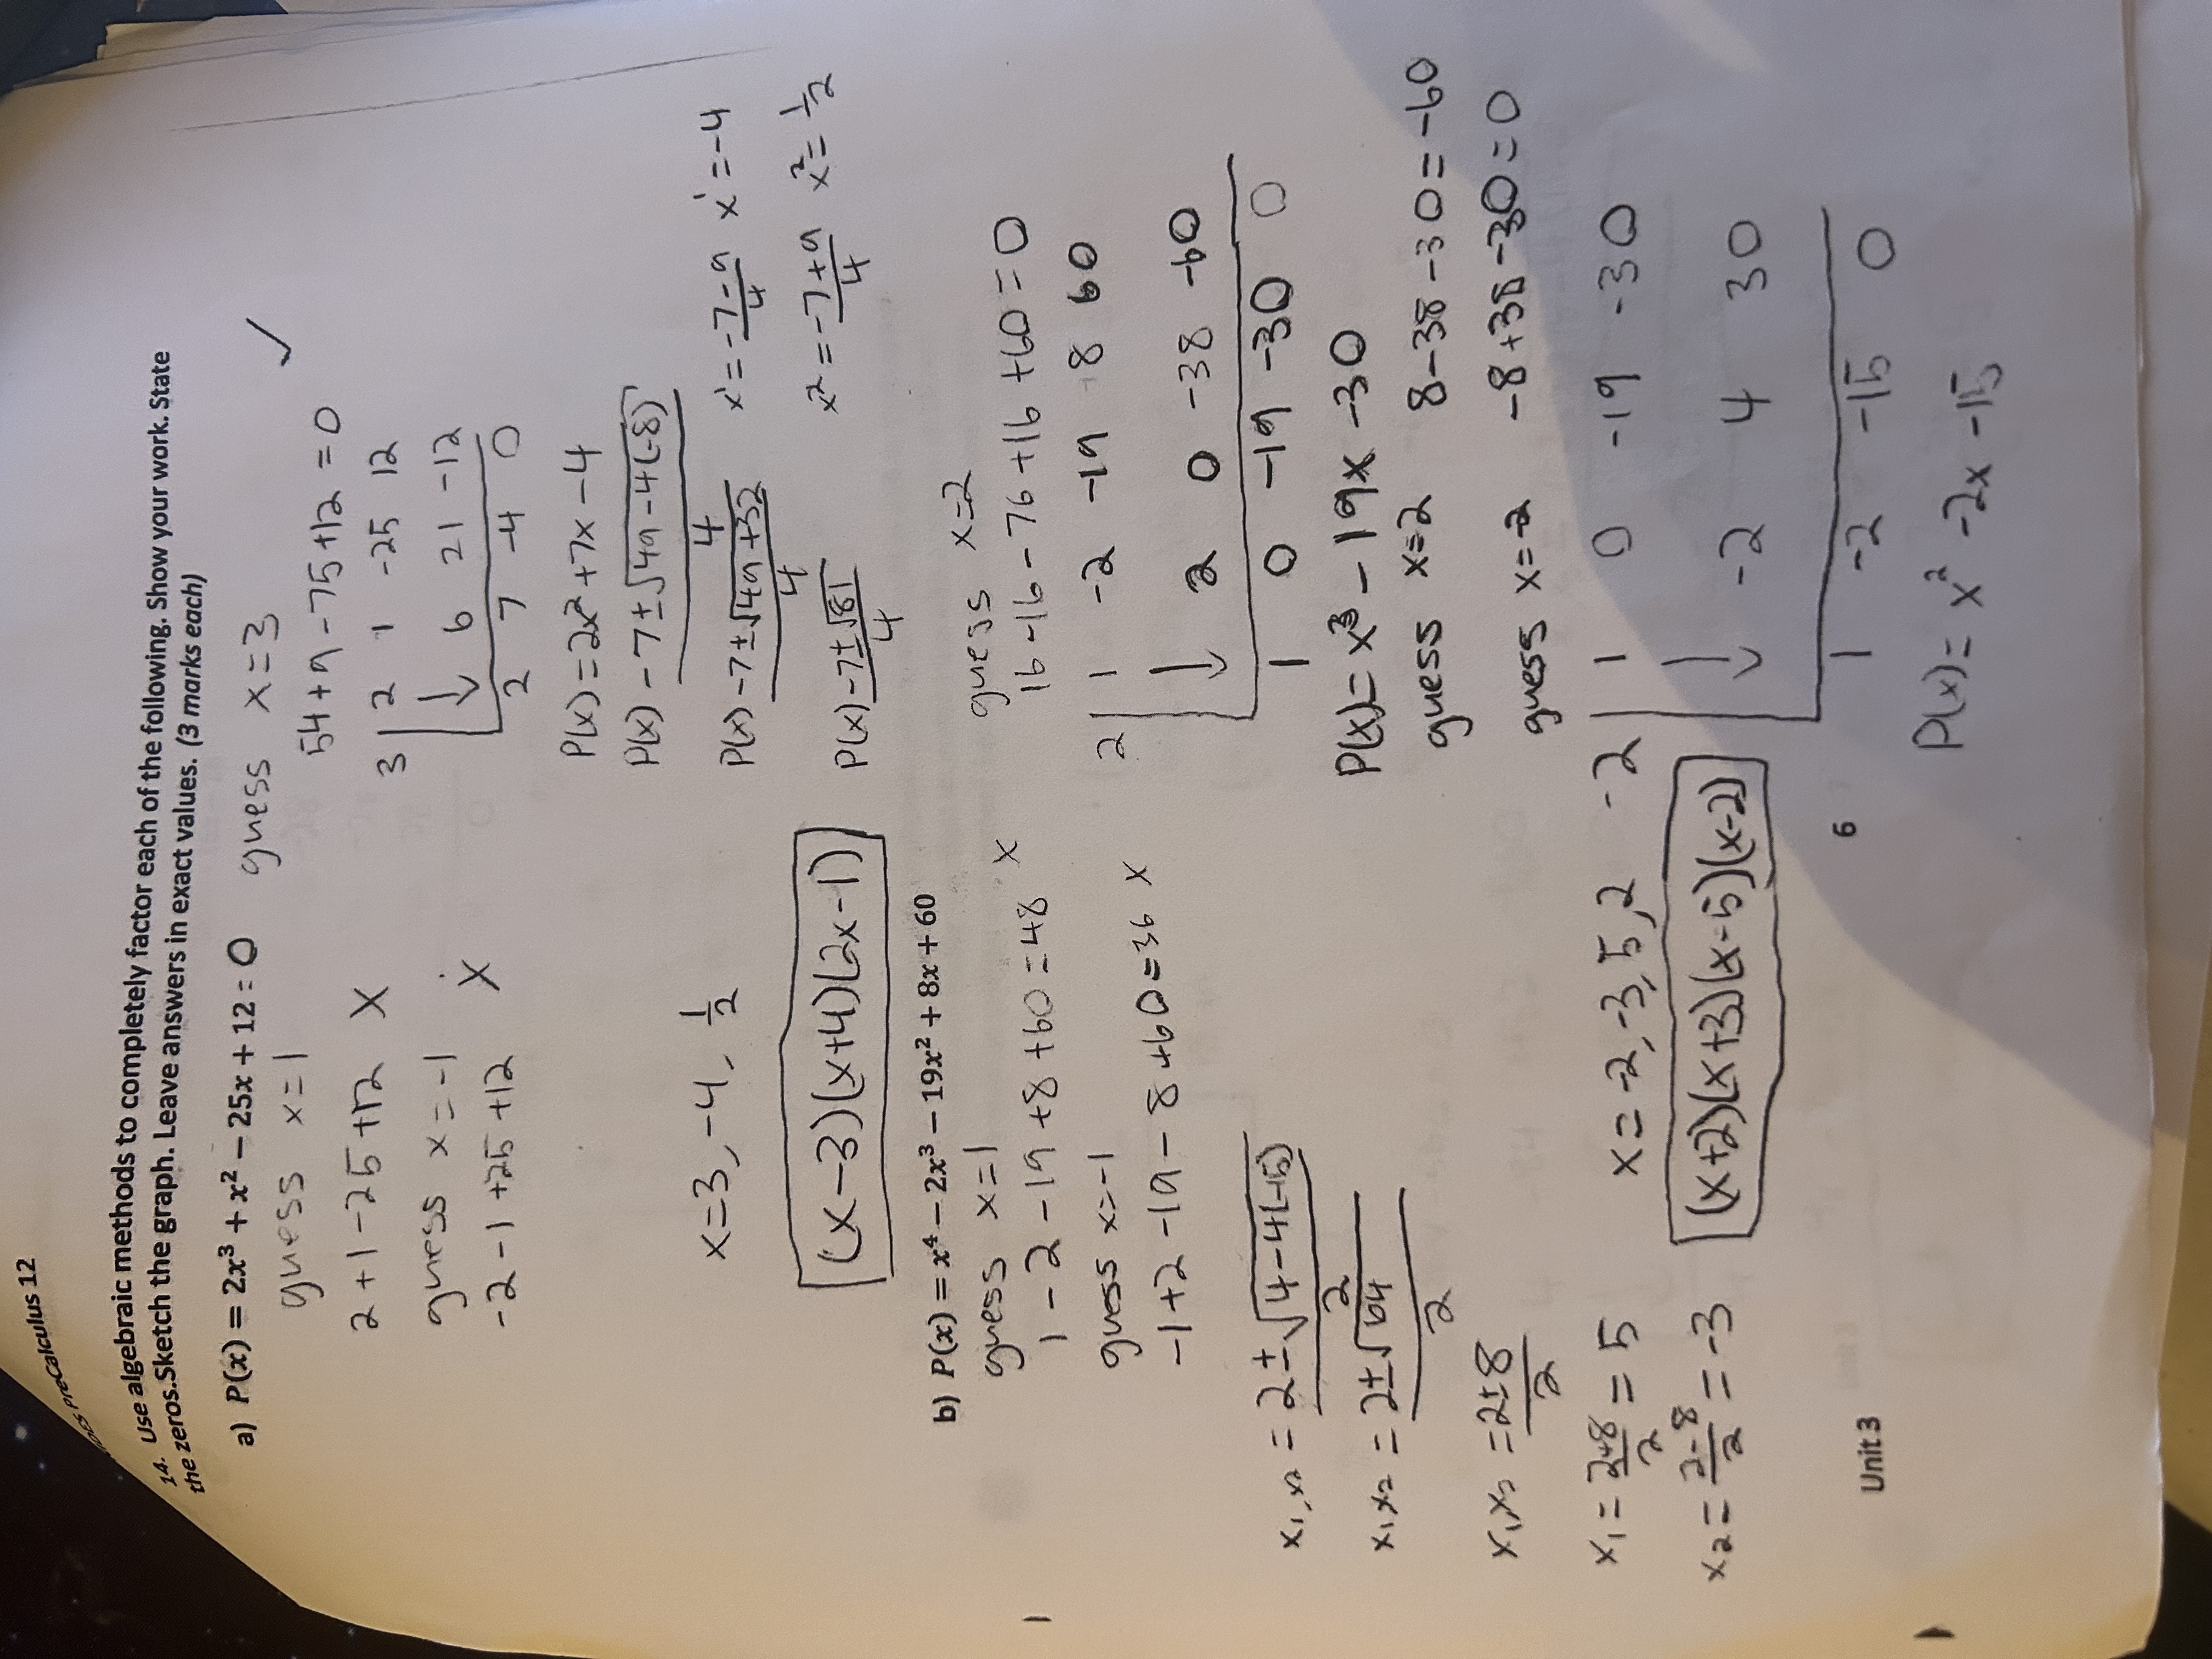 PreCalculus 12
14. Use algebraic methods to completely factor each of the following. Show your work. State
the zeros.Sketch the graph. Leave answers in exact values. (3 marks each)
a) P(x) = 2x³ + x² − 25x + 12 = 0
guess x=1
2+1-25+12 X
guess x=-1
-2-1+25+12 X
guess x=3 ✓
54+9-75+12=0
3 | 2 1 -25 12
↓ 6 21 -12
2 7 -4 0
P(x)=2x²+7x-4
P(x) -7±√49-4(-8)
4
P(x) -7±√49+32
4
P(x) -7±√81
4
x¹=-7-9/4 x¹=-4
x²=-7+9/4 x²=1/2
x=3,-4, 1/2
(x-3)(x+4)(2x-1)
b) P(x) = x⁴ − 2x³ − 19x² + 8x + 60
guess x=1
1-2-19+8+60=48 X
guess x=-1
-1+2-19-8+60=36 X
guess x=2
16-16-76+16+60=0
2 | 1 -2 -19 8 60
↓ 2 0 -38 -60
1 0 -19 -30 0
P(x)=x³-19x-30
guess x=2 8-38-30=-60
guess x=-2 -8+38-30=0
-2 | 1 0 -19 -30
↓ -2 4 30
1 -2 -15 0
P(x)=x²-2x-15
x₁,x₂=2±√4-4(-15)
2
x₁x₂=2±√64
2
x₁x₂=2±8
2
x₁=2+8/2=5
x₂=2-8/2=-3
x=-2,-3,5,2
(x+2)(x+3)(x-5)(x-2)
Unit 3
6